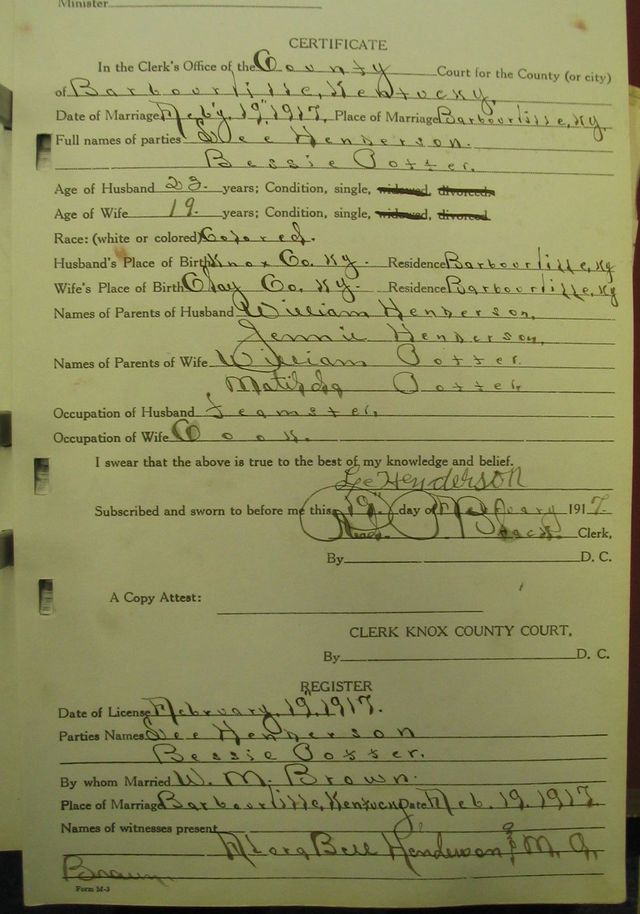 Minister
CERTIFICATE
In the Clerk's Office of the County Court for the County (or city)
of Barbourville, Kentucky,
Date of Marriage Feb'y, 19", 1917, Place of Marriage Barbourville, Ky.
Full names of parties Lee Henderson.
Bessie Potter.
Age of Husband 23. years; Condition, single, widowed, divorced.
Age of Wife 19. years; Condition, single, widowed, divorced
Race: (white or colored) Colored.
Husband's Place of Birth Knox Co. Ky. Residence Barbourville, Ky
Wife's Place of Birth Clay Co. Ky. Residence Barbourville, Ky
Names of Parents of Husband William Henderson,
Jennie Henderson,
Names of Parents of Wife William Potter.
Matilda Potter,
Occupation of Husband Teamster,
Occupation of Wife Cook.
I swear that the above is true to the best of my knowledge and belief.
Lee Henderson
Subscribed and sworn to before me this 19" day of February 1917.
Clerk,
By D. C.
A Copy Attest:
CLERK KNOX COUNTY COURT,
By D. C.
REGISTER
Date of License February, 19", 1917.
Parties Names Lee Henderson
Bessie Potter.
By whom Married W. M. Brown.
Place of Marriage Barbourville, Kentucky Date Feb. 19, 1917
Names of witnesses present
Flora Bell Henderson & M. A.
Brown
Form M-3